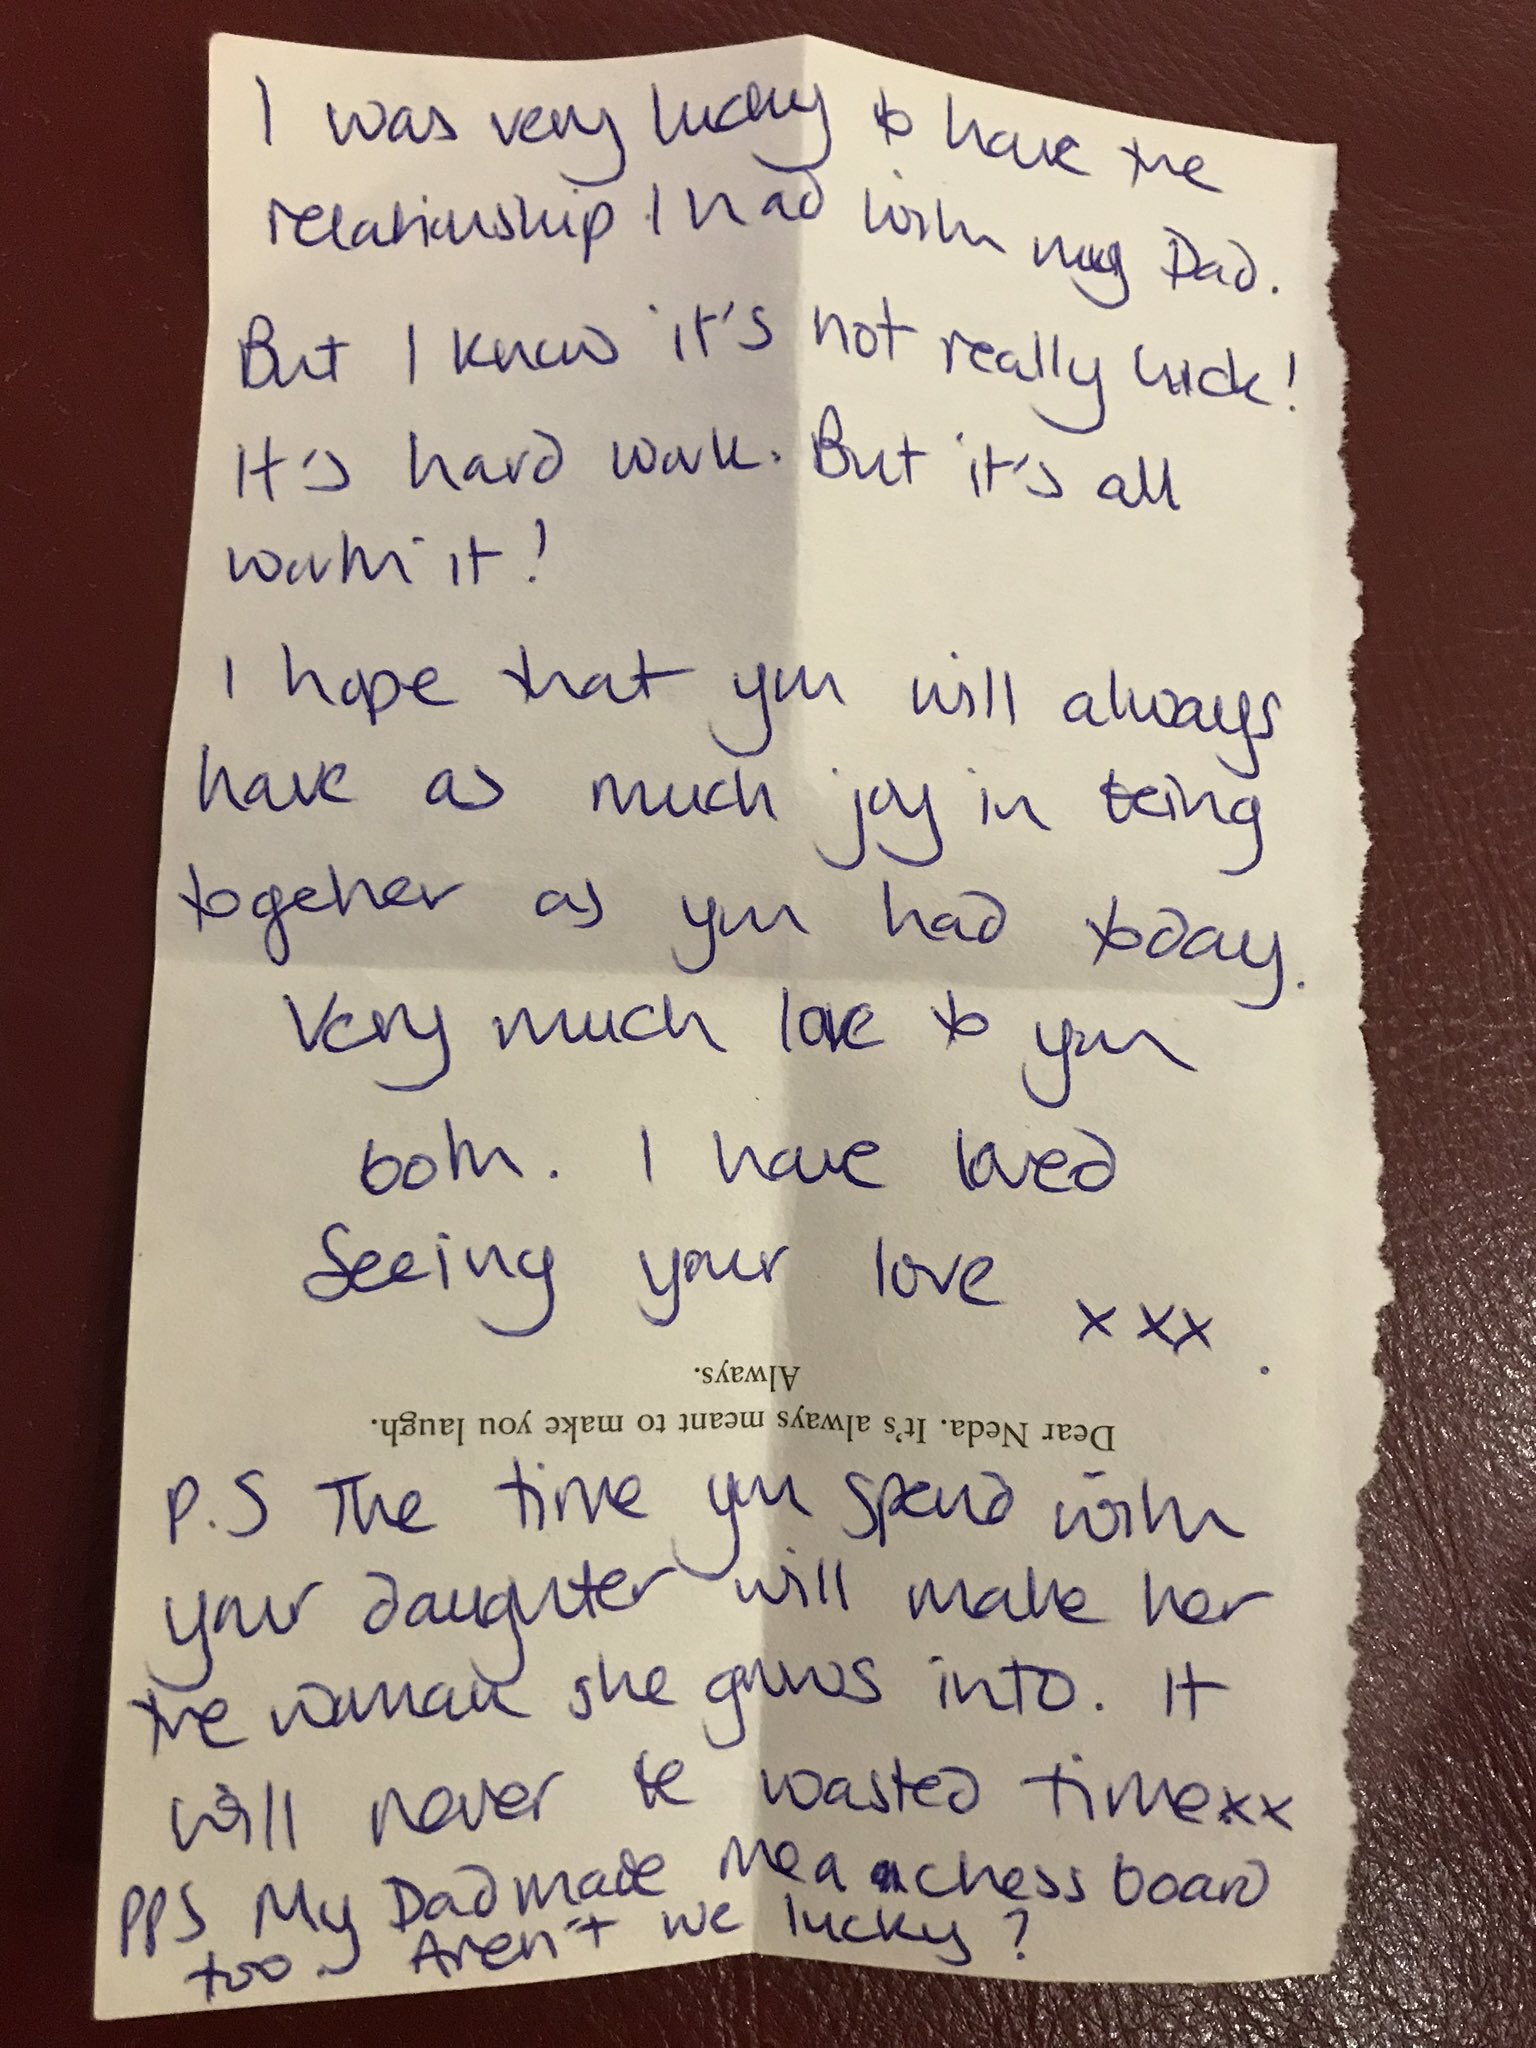 I was very lucky to have the
relationship I had with my Dad.
But I know it's not really luck!
It's hard work. But it's all
worth it!
I hope that you will always
have as much joy in being
together as you had today.
Very much love to you
both. I have loved
Seeing your love xxx.
Dear Neda. It's always meant to make you laugh.
Always.
P.S The time you spend with
your daughter will make her
the woman she grows into. It
will never be wasted time xx
PPS My Dad made me a chess board
too. Aren't we lucky?